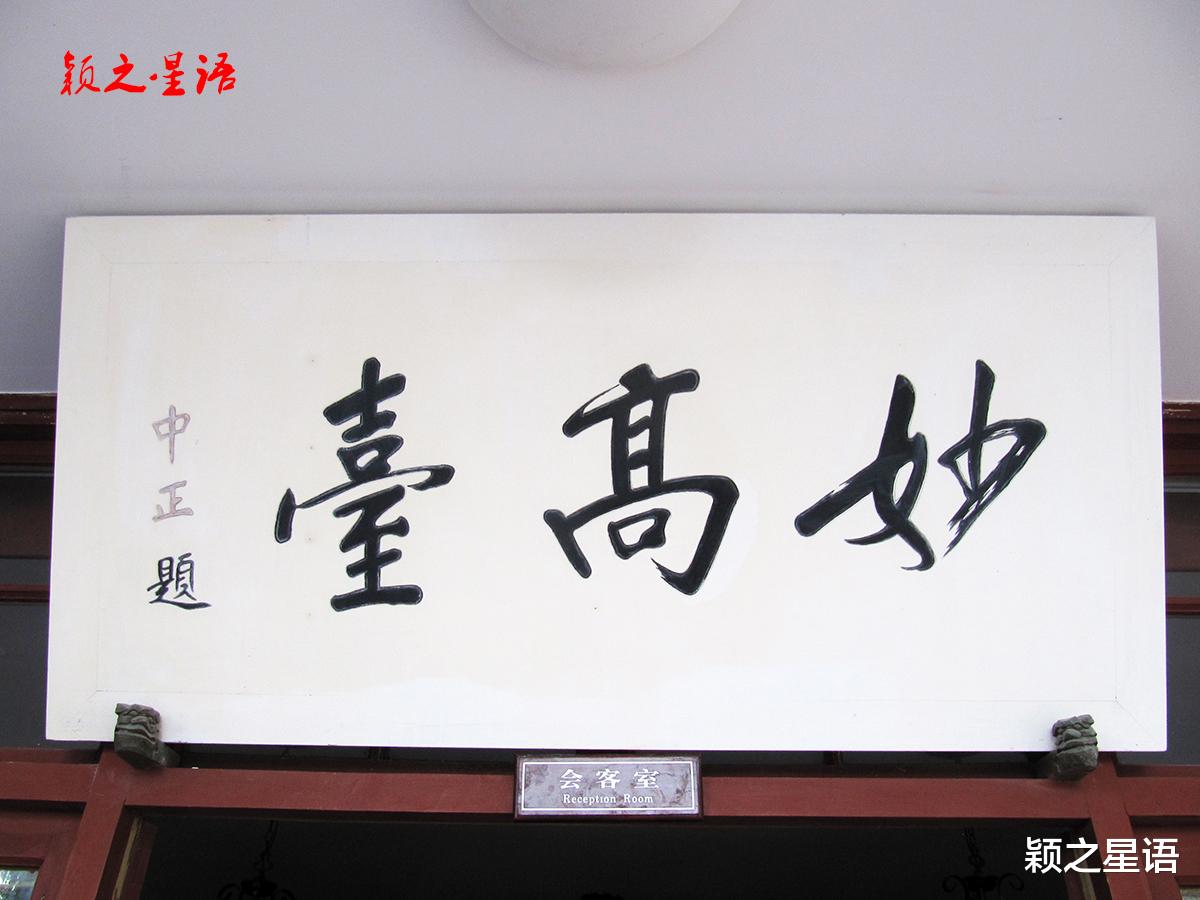 颖之星语
妙高臺
中正題
会客室
Reception Room
颖之星语